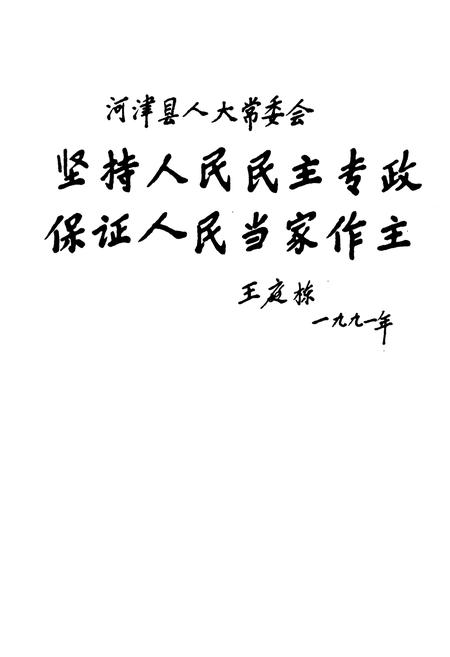 河津县人大常委会
坚持人民民主专政
保证人民当家作主
王庭栋
一九九一年